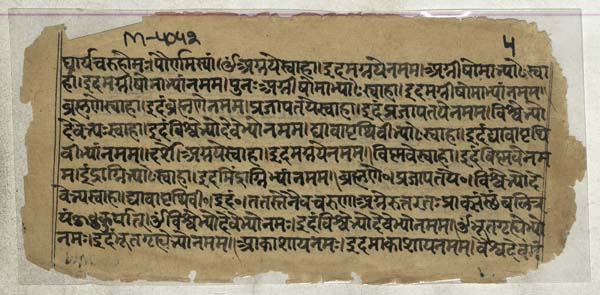 M-4042
५
घार्यचरुहोमः॥पौर्णमास्यां॥ॐअग्नयेस्वाहा॥इदमग्नयेनमम॥अग्नीषोमाभ्यांस्वा
हा॥इदमग्नीषोमाभ्यांनमम॥पुनःअग्नीषोमाभ्यांस्वाहा॥इदमग्नीषोमाभ्यांनमम॥
ब्रह्मणेस्वाहा॥इदंब्रह्मणेनमम॥प्रजापतयेस्वाहा॥इदंप्रजापतयेनमम॥विश्वेभ्यो
देवेभ्यःस्वाहा॥इदंविश्वेभ्योदेवेभ्योनमम॥द्यावापृथिवीभ्यांस्वाहा॥इदंद्यावापृथि
वीभ्यांनमम॥दर्शे॥अग्नयेस्वाहा॥इदमग्नयेनमम॥विष्णवेस्वाहा॥इदंविष्णवेनम
म॥इंद्राग्निभ्यांस्वाहा॥इदमिंद्राग्निभ्यांनमम॥ब्रह्मणे०प्रजापतये०॥विश्वेभ्योदे
वेभ्यःस्वाहा॥द्यावापृथिवी०॥इदं०॥ततस्तेनैवचरुणा॥अग्नेरुत्तरतःप्राक्संस्थंबलित्र
यंकुर्यात्॥ॐविश्वेभ्योदेवेभ्योनमः॥इदंविश्वेभ्योदेवेभ्योनमम॥ॐभूतगृह्येभ्यो
नमः॥इदंभूतगृह्येभ्योनमम॥आकाशायनमः॥इदमाकाशायनमम॥वैश्वदेव